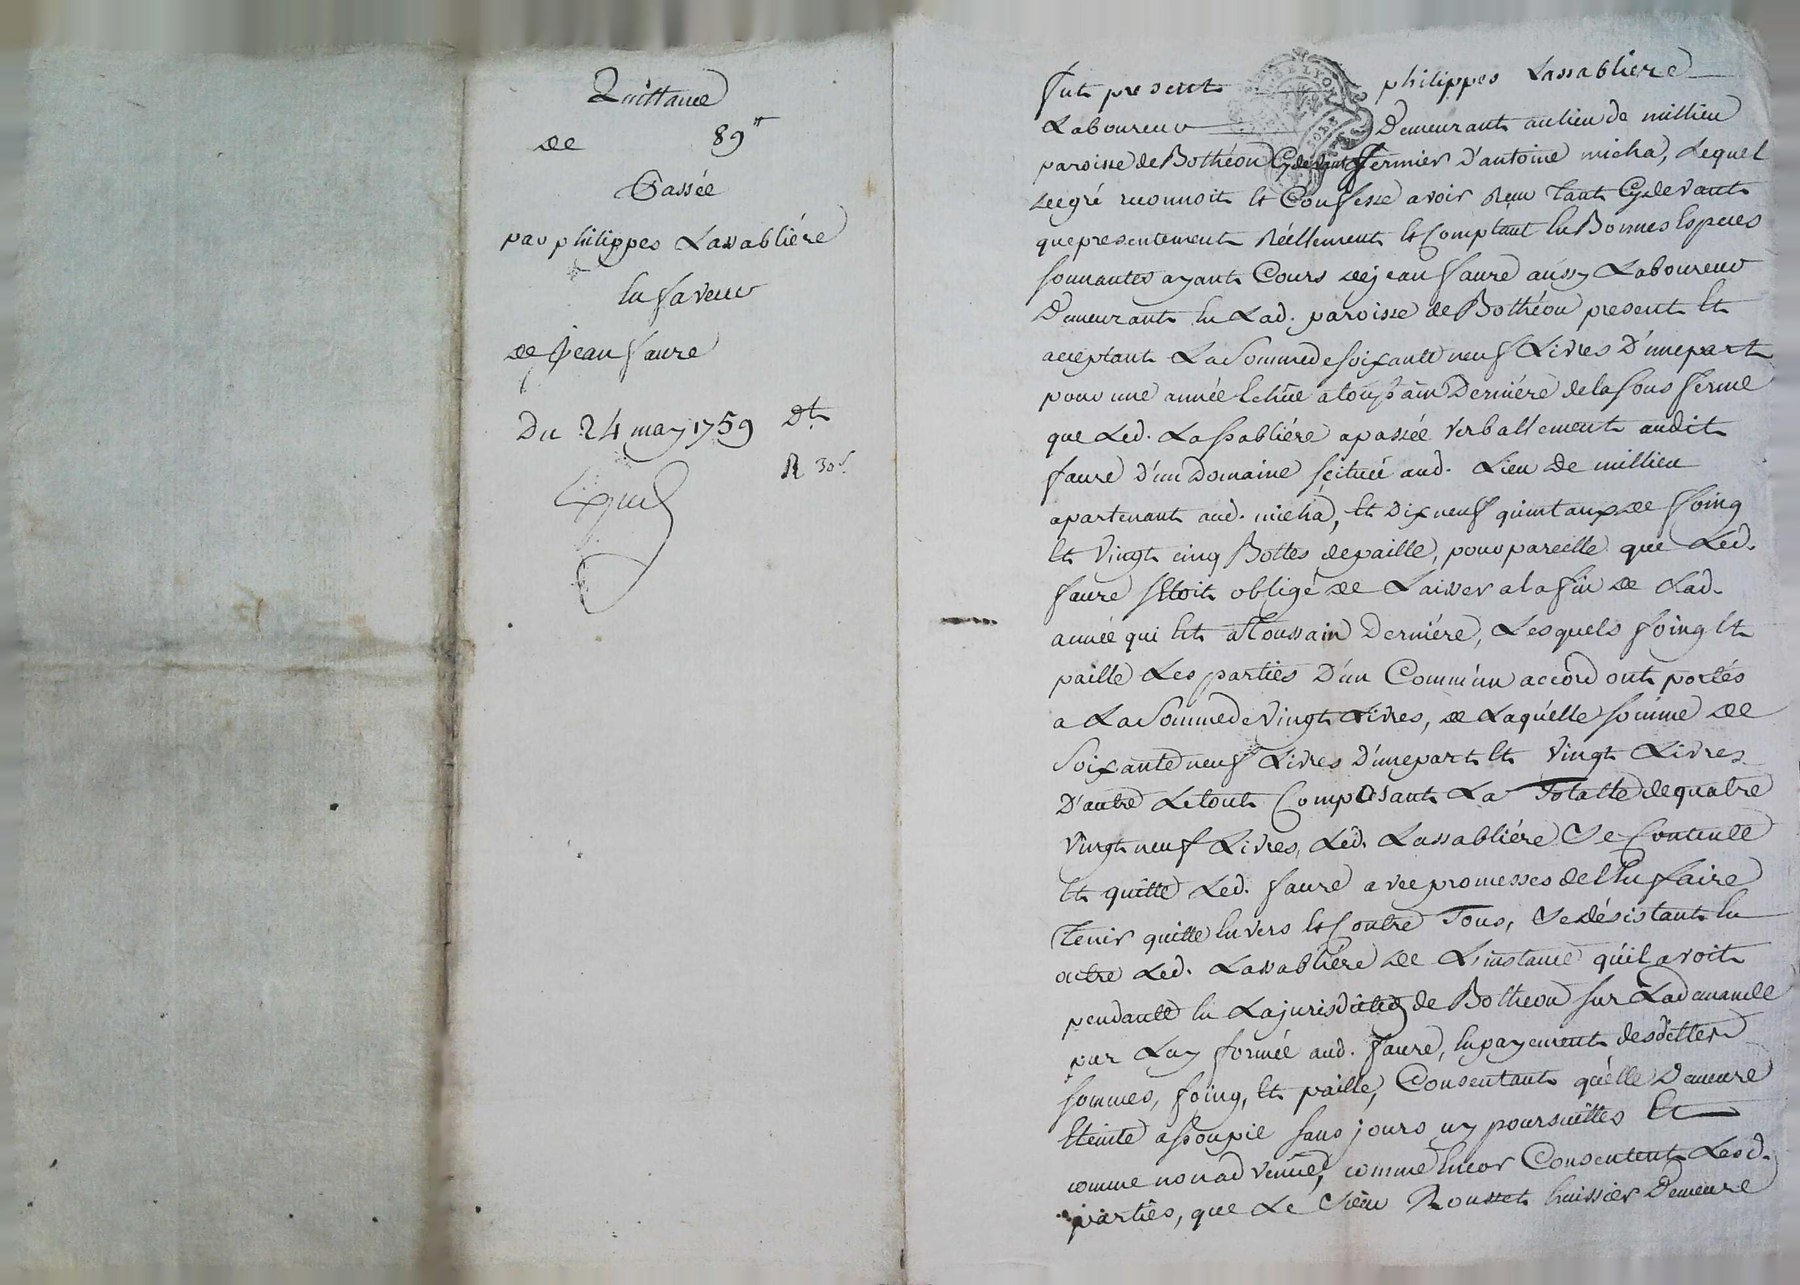 Quittance
de 89ᵗᵗ
Passée
par philippes Lassabliére
En faveur
de Jean faure
Du 24 may 1759 Dt
R 30s.
fut present philippes Lassabliere
Laboureur Demeurant au lieu de millieu
paroisse de Bothéon Cydevant fermier D'antoine micha, Lequel
de gré reconnoit et Confesse avoir Reçu tant Cydevant
que presentement Réellement et Comptant En Bonnes Especes
sonnantes ayant Cours de jean faure aussy Laboureur
Demeurant En Lad. paroisse de Bothéon present Et
aceptant La Somme de soixante neuf Livres D'une part
pour une année Echüe a toussain Derniére de la sous ferme
que Led. Lassabliére a passée verballement audit
faure D'un Domaine scitué aud. Lieu de millieu
apartenant aud. micha, Et Dix neuf quintaux de foing
Et vingt cinq Bottes de paille, pour pareille que Led.
faure s'Etoit obligé de Laisser a la fin de Lad.
année qui Est a toussain Derniére, Lesquels foing Et
paille Les parties D'un Commun accord ont portés
a La Somme de vingt Livres, de Laquelle somme de
Soixante neuf Livres D'une part Et vingt Livres
D'autre Le tout Composant La Totalle de quatre
vingt neuf Livres, Led. Lassabliére Se Contente
Et quitte Led. faure avec promesses de L'En faire
Tenir quitte Envers Et Contre Tous, Se désistant En
outre Led. Lassabliére de L'instance qu'il avoit
pendante En La jurisdiction de Botheon sur La demande
par Luy formée aud. faure, En payement desdittes
sommes, foing, Et paille, Consentant qu'elle Demeure
Eteinte assoupie sans jours ny poursuittes Et
comme non advenüe, comme Encor Consentent Lesd.
parties, que Le Sieur Rousset huissier Demeure